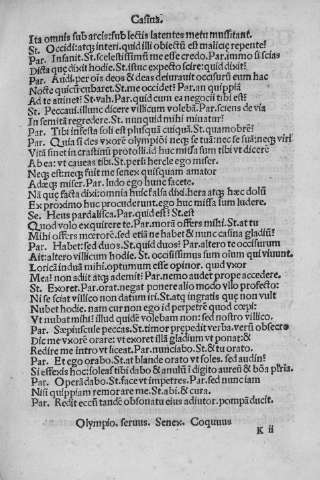 Casina.
Ita omnis sub arcis: sub lectis latentes metu mussitant.
St. Occidi: atq; interi. quid illi obiectū est malicię repente?
Par. Insanit. St. scelestissimū me esse credo. Par. immo si scias
Dicta quę dixit hodie. St. istuc expecto scire: quid dixit?
Par. Audi. per oīs deos & deas deiurauit occisurū eum hac
Nocte quicū cubaret. St. me occidet? Par. an quippiā
Ad te attinet? St. vah. Par. quid cum ea negocii tibi est?
St. Peccaui. illunc dicere villicum volebā. Par. sciens de via
In semitā regredere. St. nunquid mihi minatur?
Par. Tibi infesta soli est plusquā cuiquā. St. quamobrē?
Par. Quia si des vxorē olympiōi neq; se tuā: nec se suā: neq; viri
Vitā sinet in crastinū protolli. id huc missa sum tibi vt dicerē
Ab ea: vt caueas tibi. St. perii hercle ego miser.
Neq; est: neq; fuit me senex quisquam amator
Adæq; miser. Par. ludo ego hunc facete.
Nā quę facta dixi: omnia huic falsa dixi. hera atq; hæc dolū
Ex proximo huc procuderunt. ego huc missa sum ludere.
Se. Heus pardalisca. Par. quid est? St. est
Quod volo exquirere te. Par. morā offers mihi. St. at tu
Mihi offers męrorē. sed etiā ne habet & nunc casina gladiū?
Par. Habet: sed duos. St. quid duos? Par. altero te occisurum
Ait: altero villicum hodie. St. occisissimus sum oium qui viuunt.
Loricā induā mihi. optumum esse opinor. quid vxor
Mea? non adiit atq; ademit? Par. nemo audet prope accedere.
St. Exoret. Par. orat. negat ponere alio modo vllo profecto:
Ni se sciat villico non datum iri. St. atq; ingratis que non vult
Nubet hodie. nam cur non ego id perpetrē quod cœpi:
Vt nubat mihi? illud quidē volebam nou: sed nostro villico.
Par. Sæpiuscule peccas. St. timor prępedit verba. verū obsecro
Dic me vxorē orare: vt exoret illā gladium vt ponat: &
Redire me intro vt liceat. Par. nunciabo. St. & tu orato.
Par. Et ego orabo. St. at blande orato vt soles. sed audin?
Si effexis hoc: soleas tibi dabo & anulū ī digito aureū & bōa pl'ria.
Par. Operā dabo. St. face vt impetres. Par. sed nunc iam
Nisi quippiam remorare me. St. abi. & cura.
Par. Redit eccū tandē obsonatu eius adiutor. pompā ducit.
Olympio. seruus. Senex. Coquuus
K ii